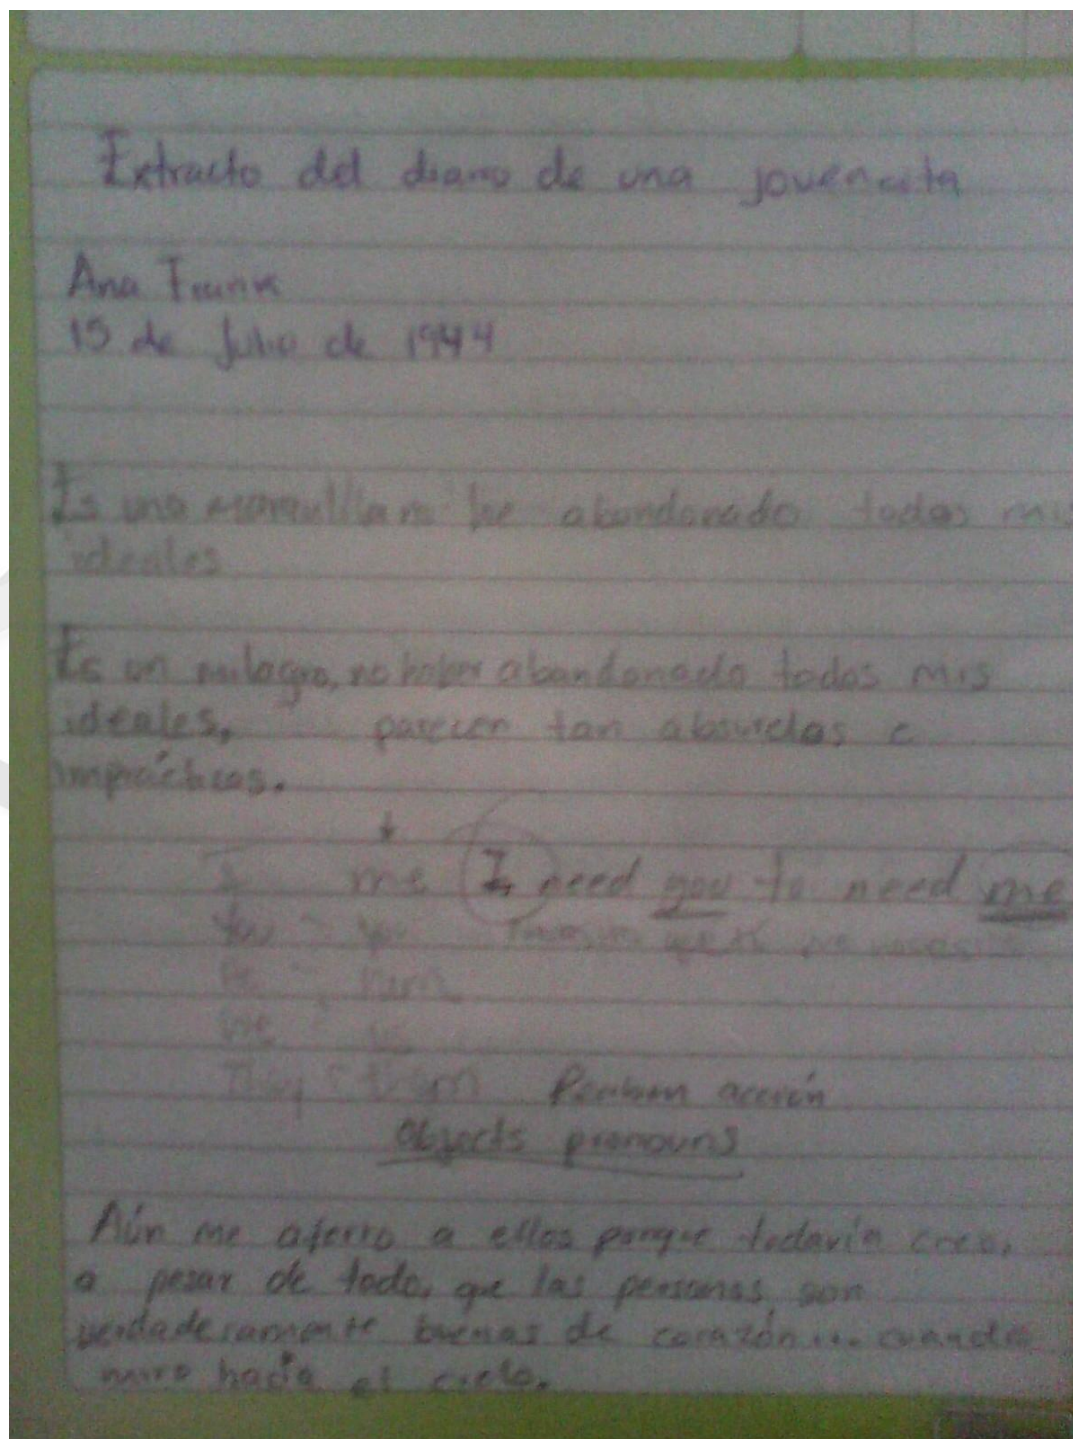 Extracto del diario de una jovencita
Ana Frank
15 de Julio de 1944
Es una he abandonado todos mis
ideales
Es un milagro, no haber abandonado todos mis
ideales, parecen tan absurdos e
imprácticos.
I me I need you to need me
You - you
he - him
We - us
They - them Reciben acción
Objects pronouns
Aún me aferro a ellos porque todavía creo,
a pesar de todo, que las personas son
verdaderamente buenas de corazón... cuando
miro hacia el cielo.